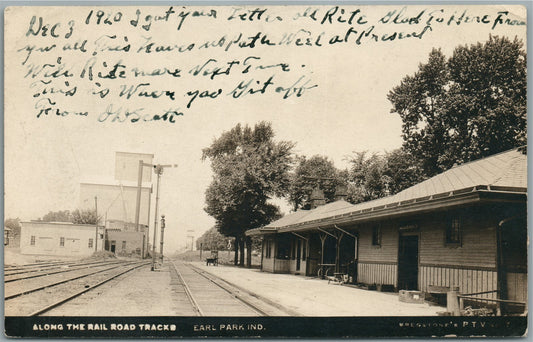 Dec 3 1920 I got your Letter all Rite Glad To Here From
you all This Leaves us Pretty Well at Present
Will Rite more Next Time.
This is Where you Git off
From
ALONG THE RAIL ROAD TRACKS EARL PARK IND.